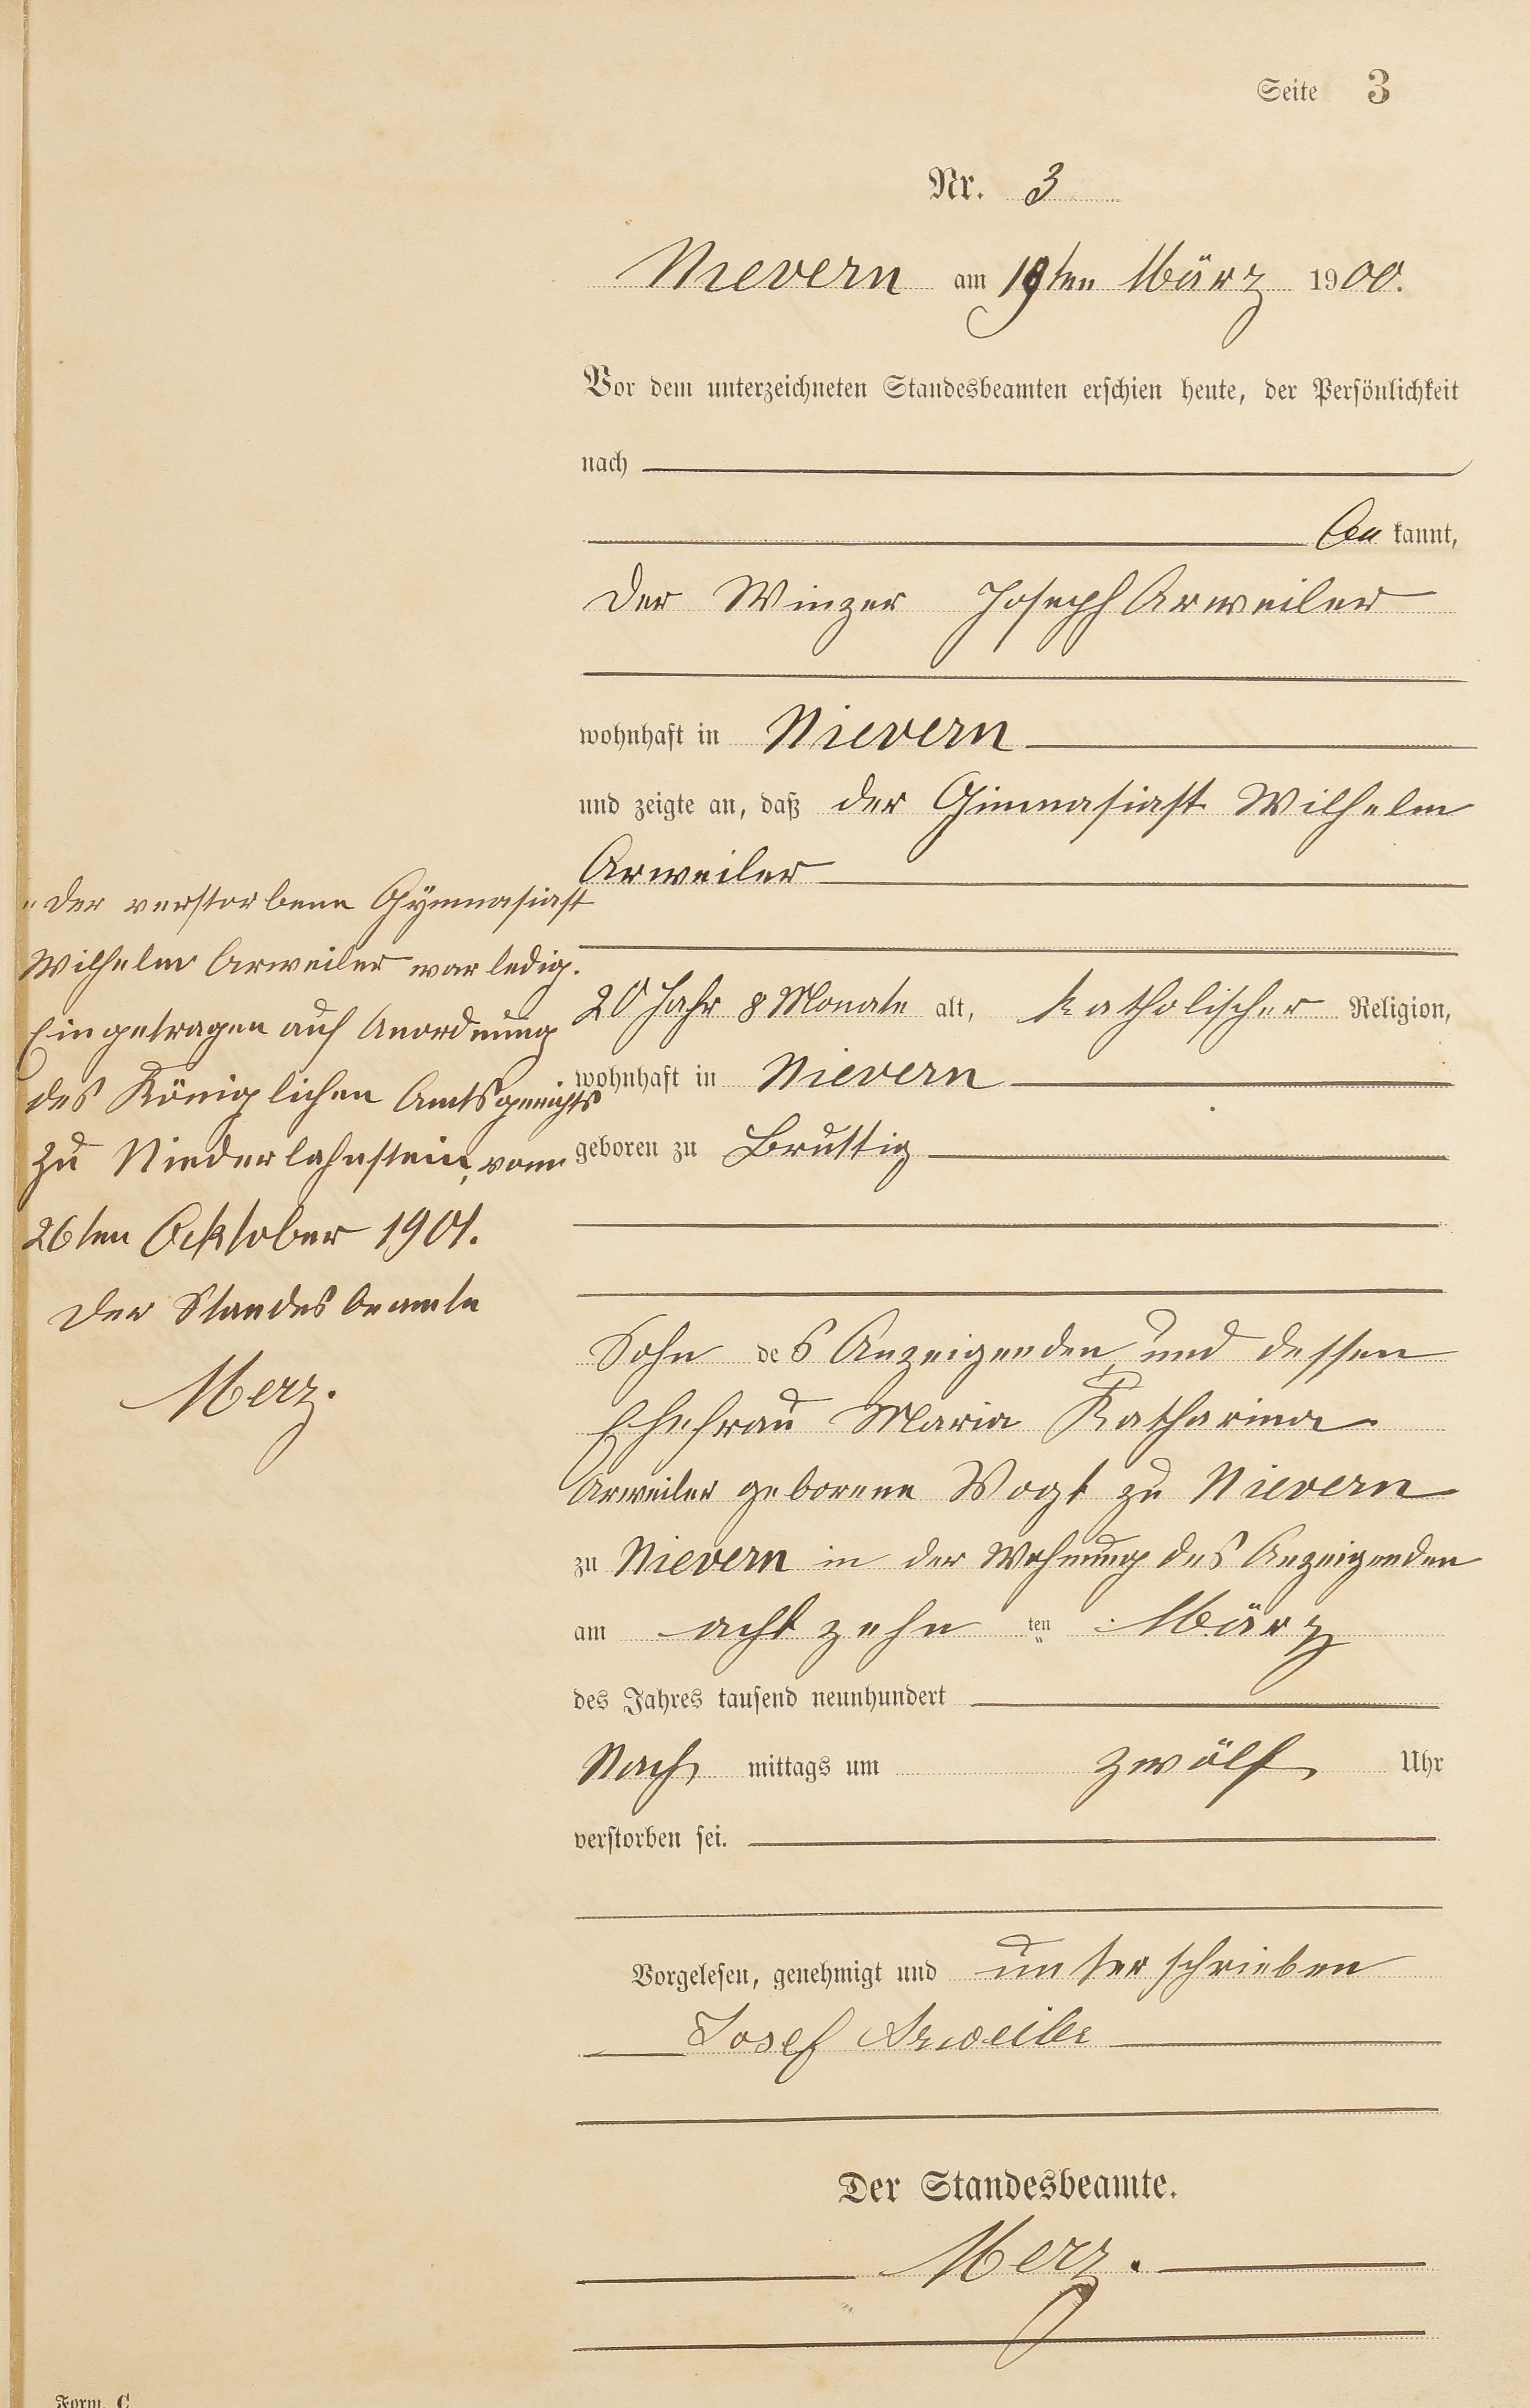 Seite 3
Nr. 3
Nievern am 19ten März 1900.
Vor dem unterzeichneten Standesbeamten erschien heute, der Persönlichkeit
nach
be kannt,
der Winzer Joseph Arweiler
wohnhaft in Nievern
und zeigte an, daß der Gimnasiast Wilhelm
Arweiler
20 Jahr 8 Monate alt, katholischer Religion,
wohnhaft in Nievern
geboren zu Bruttig
Sohn des Anzeigenden und dessen
Ehefrau Maria Katharina
Arweiler geborene Vogt zu Nievern
zu Nievern in der Wohnung des Anzeigenden
am acht zehn ten März
des Jahres tausend neunhundert
Nach mittags um zwölf Uhr
verstorben sei.
Vorgelesen, genehmigt und unterschrieben
Josef Arweiler
Der Standesbeamte.
Merz.
"der verstorbene Gymnasiast
Wilhelm Arweiler war ledig.
Eingetragen auf Anordnung
des Königlichen Amtsgerichts
zu Niederlahnstein, vom
26ten Ocktober 1901.
Der Standesbeamte
Merz.
Form. C